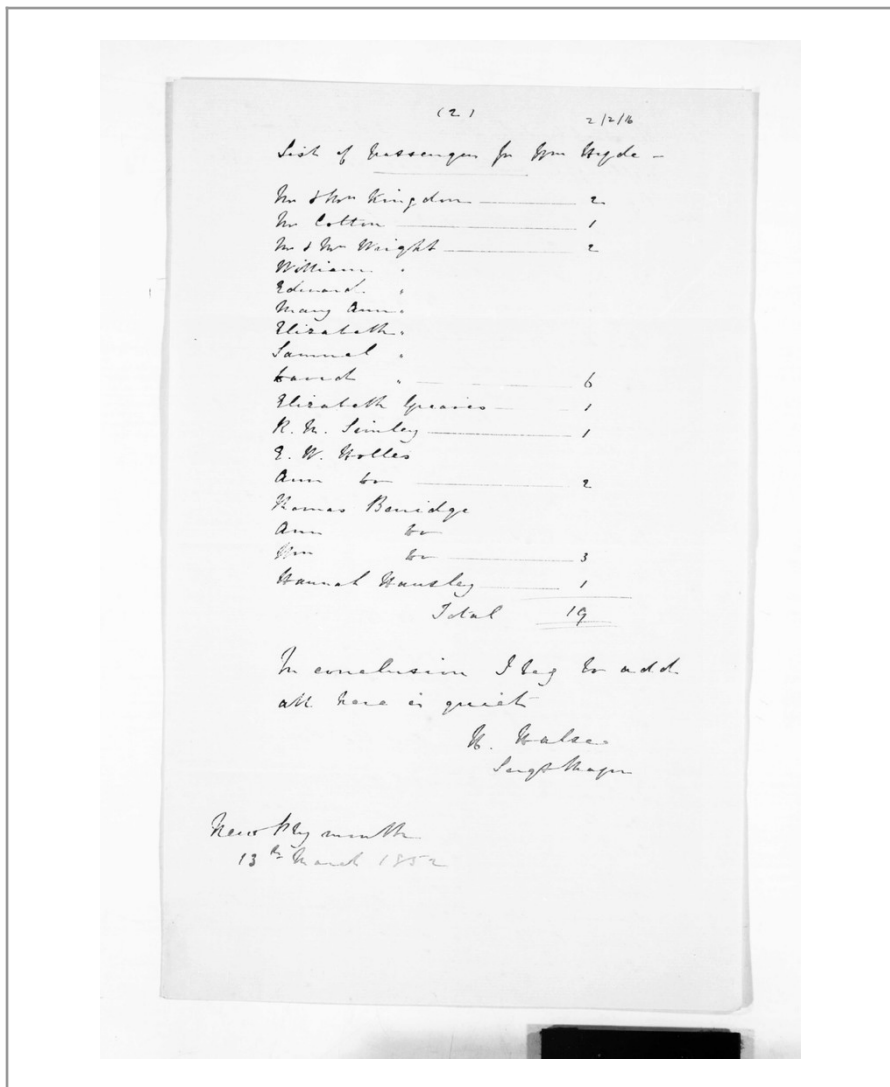 (2)
2/2/16
List of Passengers Wm Hyde -
Mr & Mrs Kingdon 2
Mr Cotton 1
Mr & Mrs Wright 2
William "
Edward "
Mary Ann "
Elizabeth "
Samuel "
David " 6
Elizabeth Greaves 1
R. M. 1
E. W. Holles
Ann Do 2
Thomas Berridge
Ann Do
Wm Do 3
Hannah Hansley 1
Total 19
In conclusion I beg to add
all here is quiet
H. Halse
Sergt Major
New Plymouth
13th March 1852